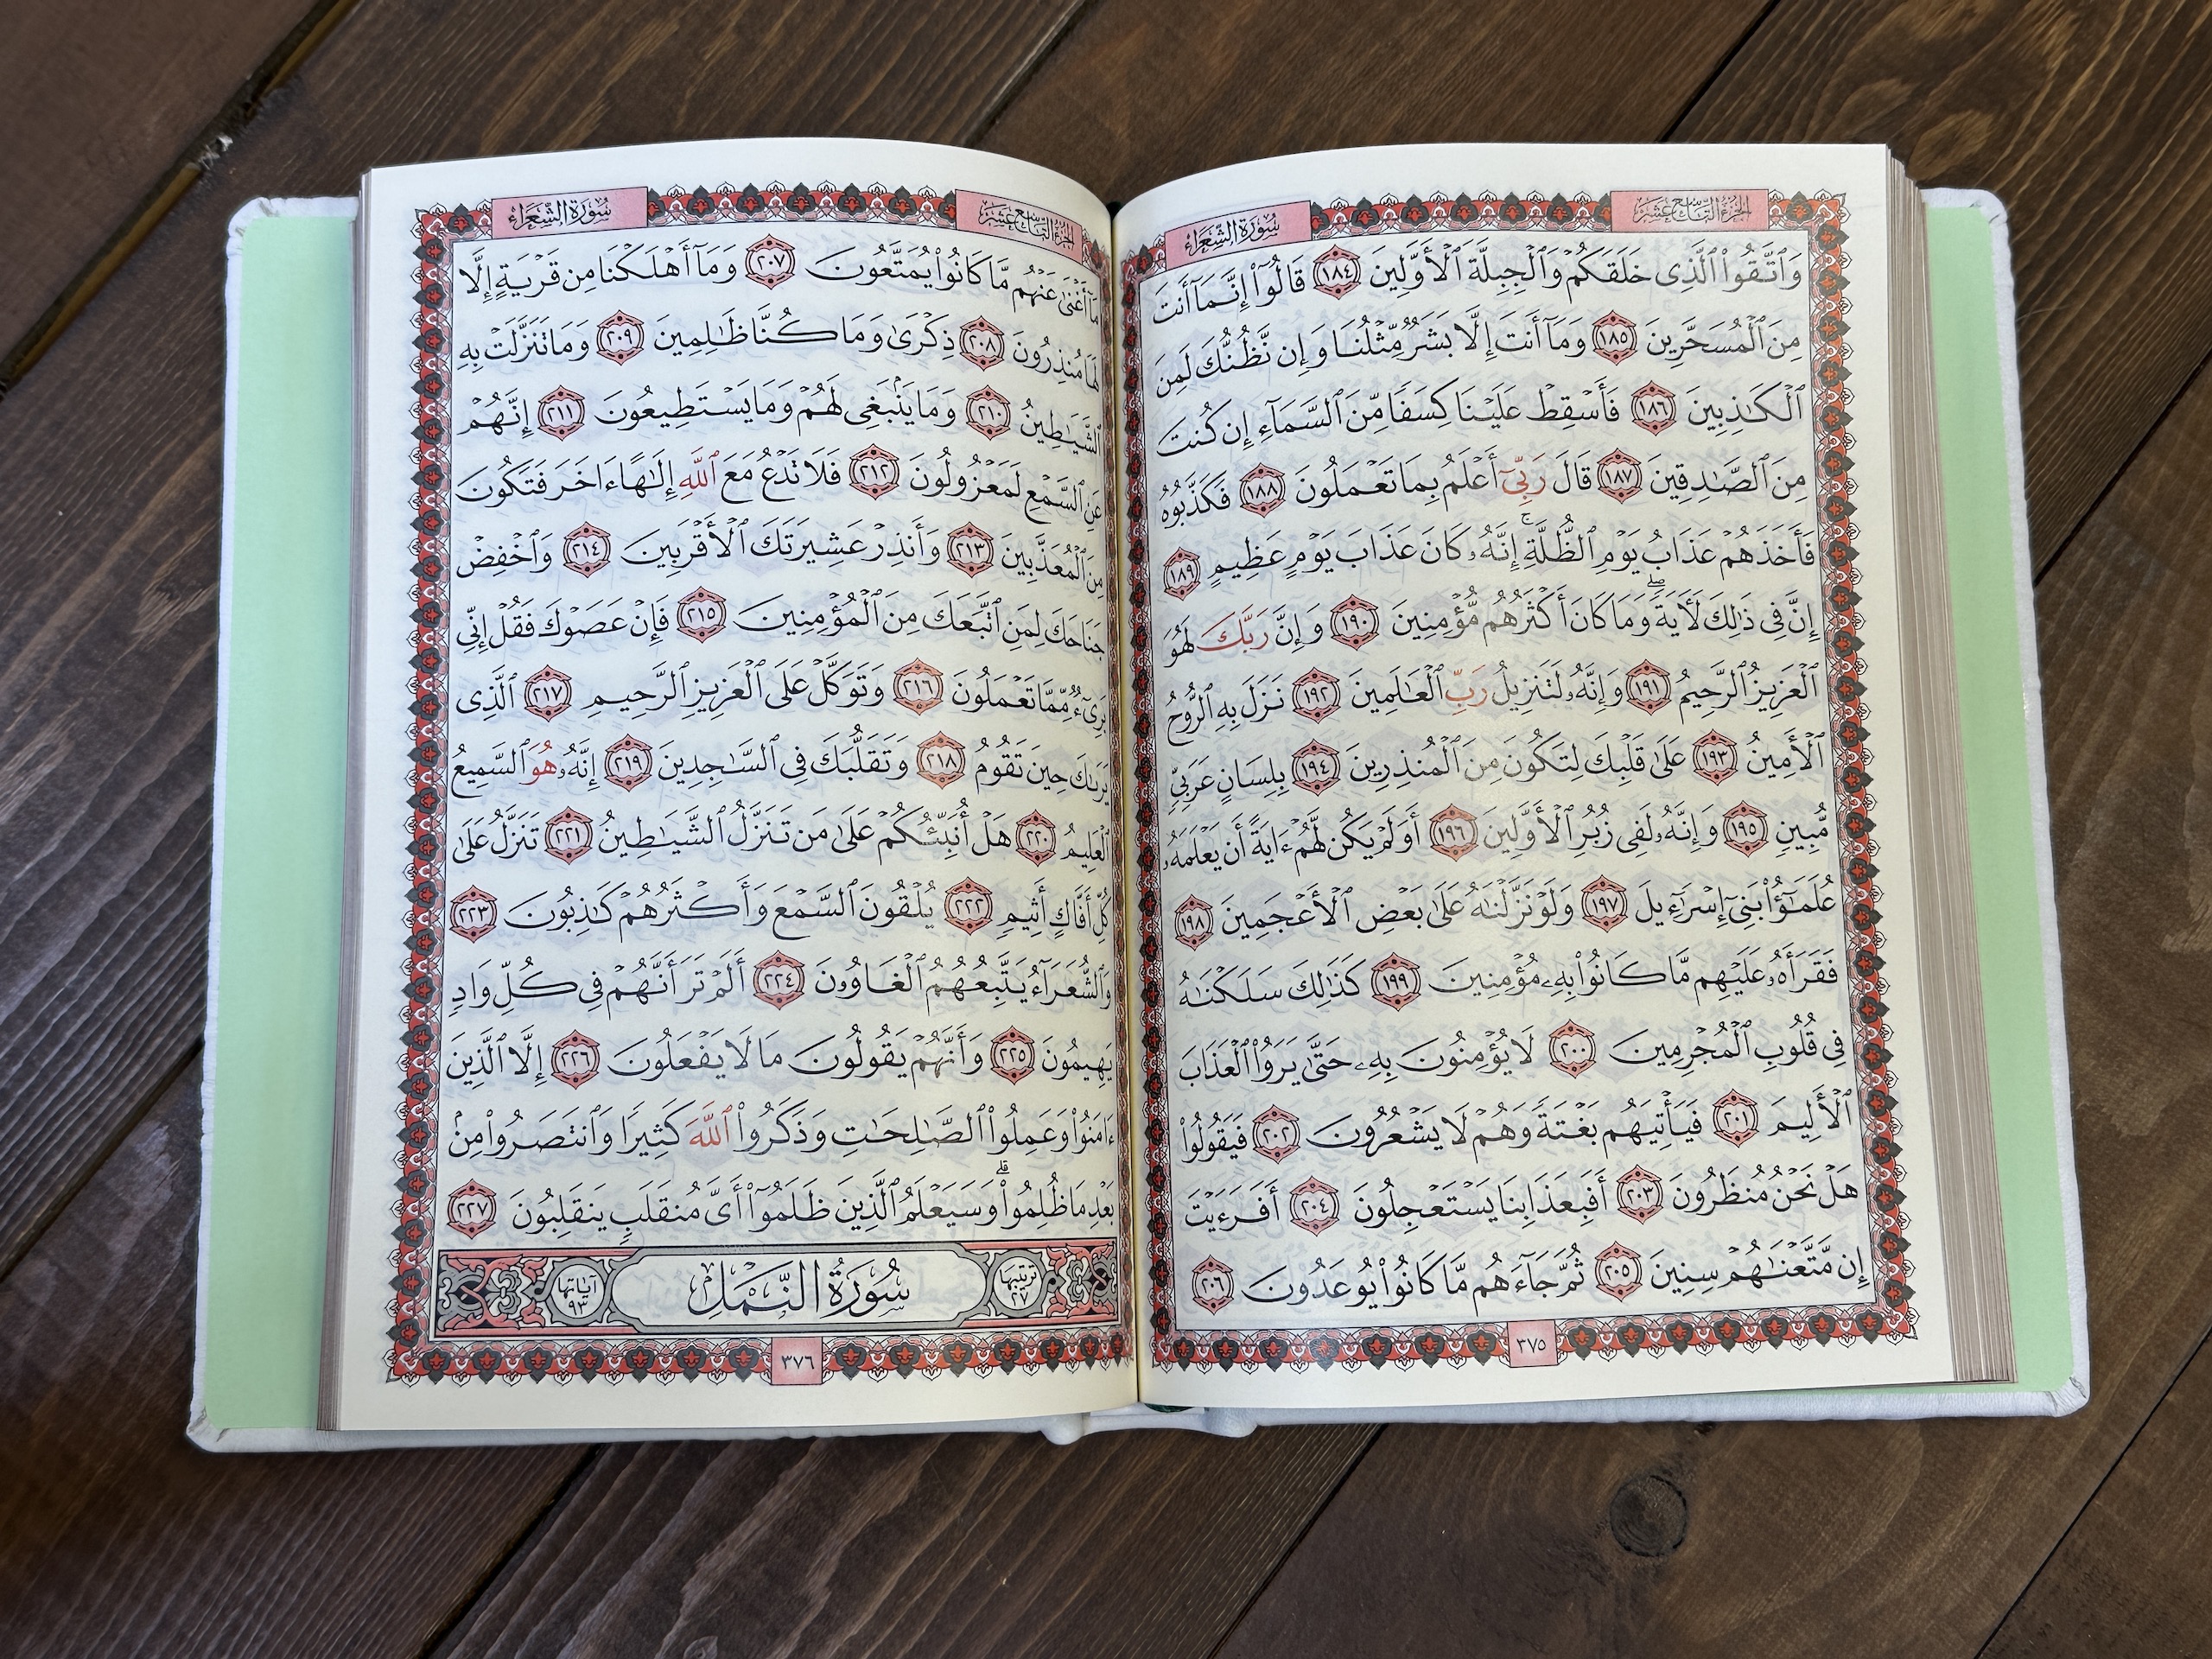 الجزء التاسع عشر
سورة الشعراء
وَٱتَّقُوا۟ ٱلَّذِى خَلَقَكُمْ وَٱلْجِبِلَّةَ ٱلْأَوَّلِينَ ١٨٤ قَالُوٓا۟ إِنَّمَآ أَنتَ
مِنَ ٱلْمُسَحَّرِينَ ١٨٥ وَمَآ أَنتَ إِلَّا بَشَرٌ مِّثْلُنَا وَإِن نَّظُنُّكَ لَمِنَ
ٱلْكَٰذِبِينَ ١٨٦ فَأَسْقِطْ عَلَيْنَا كِسَفًا مِّنَ ٱلسَّمَآءِ إِن كُنتَ
مِنَ ٱلصَّٰدِقِينَ ١٨٧ قَالَ رَبِّىٓ أَعْلَمُ بِمَا تَعْمَلُونَ ١٨٨ فَكَذَّبُوهُ
فَأَخَذَهُمْ عَذَابُ يَوْمِ ٱلظُّلَّةِ ۚ إِنَّهُۥ كَانَ عَذَابَ يَوْمٍ عَظِيمٍ ١٨٩
إِنَّ فِى ذَٰلِكَ لَءَايَةً ۖ وَمَا كَانَ أَكْثَرُهُم مُّؤْمِنِينَ ١٩٠ وَإِنَّ رَبَّكَ لَهُوَ
ٱلْعَزِيزُ ٱلرَّحِيمُ ١٩١ وَإِنَّهُۥ لَتَنزِيلُ رَبِّ ٱلْعَٰلَمِينَ ١٩٢ نَزَلَ بِهِ ٱلرُّوحُ
ٱلْأَمِينُ ١٩٣ عَلَىٰ قَلْبِكَ لِتَكُونَ مِنَ ٱلْمُنذِرِينَ ١٩٤ بِلِسَانٍ عَرَبِىٍّ
مُّبِينٍ ١٩٥ وَإِنَّهُۥ لَفِى زُبُرِ ٱلْأَوَّلِينَ ١٩٦ أَوَلَمْ يَكُن لَّهُمْ ءَايَةً أَن يَعْلَمَهُۥ
عُلَمَٰٓؤُا۟ بَنِىٓ إِسْرَٰٓءِيلَ ١٩٧ وَلَوْ نَزَّلْنَٰهُ عَلَىٰ بَعْضِ ٱلْأَعْجَمِينَ ١٩٨
فَقَرَأَهُۥ عَلَيْهِم مَّا كَانُوا۟ بِهِۦ مُؤْمِنِينَ ١٩٩ كَذَٰلِكَ سَلَكْنَٰهُ
فِى قُلُوبِ ٱلْمُجْرِمِينَ ٢٠٠ لَا يُؤْمِنُونَ بِهِۦ حَتَّىٰ يَرَوُا۟ ٱلْعَذَابَ
ٱلْأَلِيمَ ٢٠١ فَيَأْتِيَهُم بَغْتَةً وَهُمْ لَا يَشْعُرُونَ ٢٠٢ فَيَقُولُوا۟
هَلْ نَحْنُ مُنظَرُونَ ٢٠٣ أَفَبِعَذَابِنَا يَسْتَعْجِلُونَ ٢٠٤ أَفَرَءَيْتَ
إِن مَّتَّعْنَٰهُمْ سِنِينَ ٢٠٥ ثُمَّ جَآءَهُم مَّا كَانُوا۟ يُوعَدُونَ ٢٠٦
٣٧٥
الجزء التاسع عشر
سورة الشعراء
مَآ أَغْنَىٰ عَنْهُم مَّا كَانُوا۟ يُمَتَّعُونَ ٢٠٧ وَمَآ أَهْلَكْنَا مِن قَرْيَةٍ إِلَّا
لَهَا مُنذِرُونَ ٢٠٨ ذِكْرَىٰ وَمَا كُنَّا ظَٰلِمِينَ ٢٠٩ وَمَا تَنَزَّلَتْ بِهِ
ٱلشَّيَٰطِينُ ٢١٠ وَمَا يَنۢبَغِى لَهُمْ وَمَا يَسْتَطِيعُونَ ٢١١ إِنَّهُمْ
عَنِ ٱلسَّمْعِ لَمَعْزُولُونَ ٢١٢ فَلَا تَدْعُ مَعَ ٱللَّهِ إِلَٰهًا ءَاخَرَ فَتَكُونَ
مِنَ ٱلْمُعَذَّبِينَ ٢١٣ وَأَنذِرْ عَشِيرَتَكَ ٱلْأَقْرَبِينَ ٢١٤ وَٱخْفِضْ
جَنَاحَكَ لِمَنِ ٱتَّبَعَكَ مِنَ ٱلْمُؤْمِنِينَ ٢١٥ فَإِنْ عَصَوْكَ فَقُلْ إِنِّى
بَرِىٓءٌ مِّمَّا تَعْمَلُونَ ٢١٦ وَتَوَكَّلْ عَلَى ٱلْعَزِيزِ ٱلرَّحِيمِ ٢١٧ ٱلَّذِى
يَرَىٰكَ حِينَ تَقُومُ ٢١٨ وَتَقَلُّبَكَ فِى ٱلسَّٰجِدِينَ ٢١٩ إِنَّهُۥ هُوَ ٱلسَّمِيعُ
ٱلْعَلِيمُ ٢٢٠ هَلْ أُنَبِّئُكُمْ عَلَىٰ مَن تَنَزَّلُ ٱلشَّيَٰطِينُ ٢٢١ تَنَزَّلُ عَلَىٰ
كُلِّ أَفَّاكٍ أَثِيمٍ ٢٢٢ يُلْقُونَ ٱلسَّمْعَ وَأَكْثَرُهُمْ كَٰذِبُونَ ٢٢٣
وَٱلشُّعَرَآءُ يَتَّبِعُهُمُ ٱلْغَاوُۥنَ ٢٢٤ أَلَمْ تَرَ أَنَّهُمْ فِى كُلِّ وَادٍ
يَهِيمُونَ ٢٢٥ وَأَنَّهُمْ يَقُولُونَ مَا لَا يَفْعَلُونَ ٢٢٦ إِلَّا ٱلَّذِينَ
ءَامَنُوا۟ وَعَمِلُوا۟ ٱلصَّٰلِحَٰتِ وَذَكَرُوا۟ ٱللَّهَ كَثِيرًا وَٱنتَصَرُوا۟ مِنۢ
بَعْدِ مَا ظُلِمُوا۟ ۗ وَسَيَعْلَمُ ٱلَّذِينَ ظَلَمُوٓا۟ أَىَّ مُنقَلَبٍ يَنقَلِبُونَ ٢٢٧
ترتيبها ٢٧ سُورَةُ النَّمْلِ آياتها ٩٣
٣٧٦